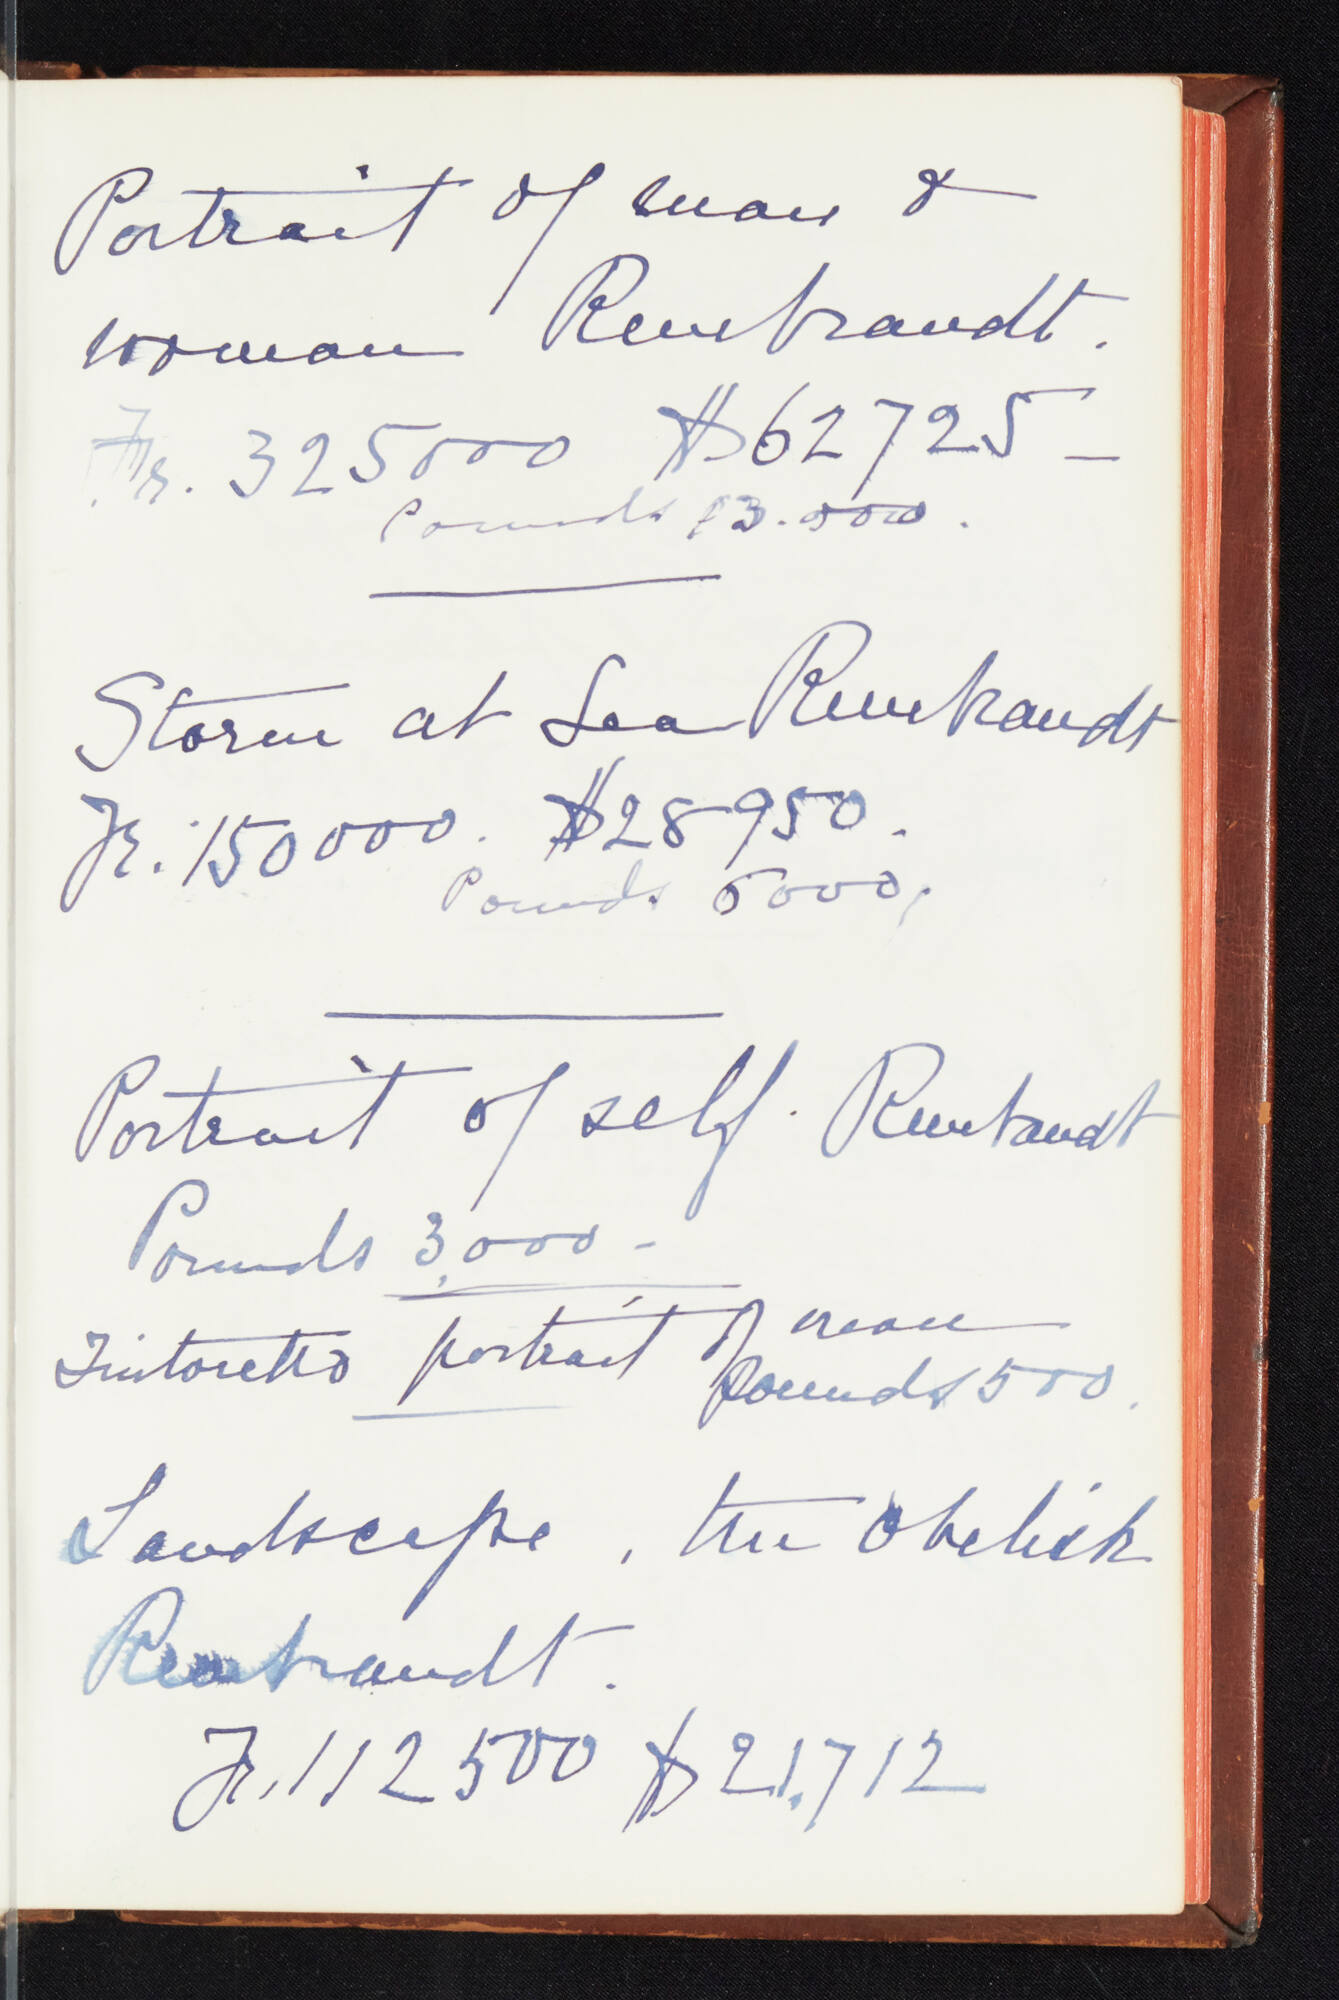 Portrait of man &
woman Rembrandt.
Fr. 325000 $62725—
Pounds 13.000.
Storm at Sea Rembrandt
Fr. 150000. $28950.
Pounds 6000.
Portrait of self. Rembrandt
Pounds 3,000-
Tintoretto portrait of man
Pounds 500.
Landscape, the Obelisk
Rembrandt.
Fr. 112500 $21,712